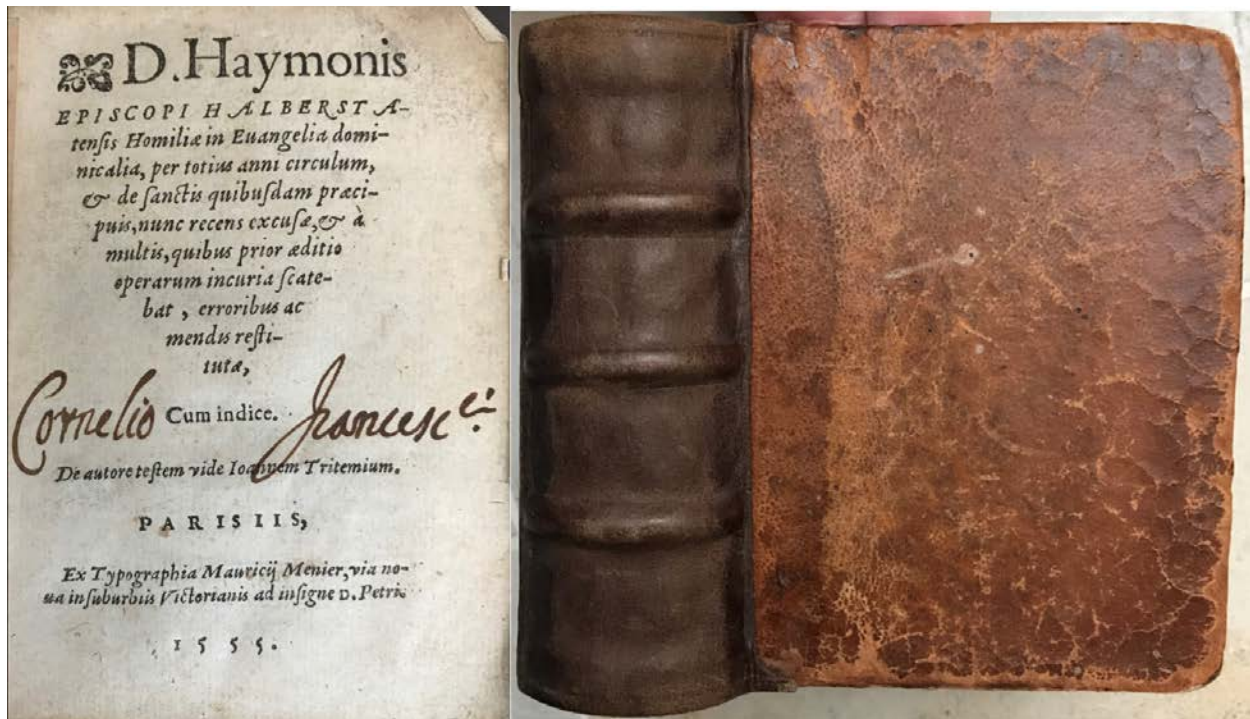 D. Haymonis
EPISCOPI HALBERSTA-
tensis Homiliæ in Euangelia domi-
nicalia, per totius anni circulum,
& de sanctis quibusdam præci-
puis, nunc recens excusæ, & à
multis, quibus prior æditio
operarum incuria scate-
bat, erroribus ac
mendis resti-
tutæ,
Cornelio Cum indice. Francesc
De autore testem vide Ioannem Tritemium.
PARISIIS,
Ex Typographia Mauricij Menier, via no-
ua in suburbiis Victorianis ad insigne D. Petri.
1555.